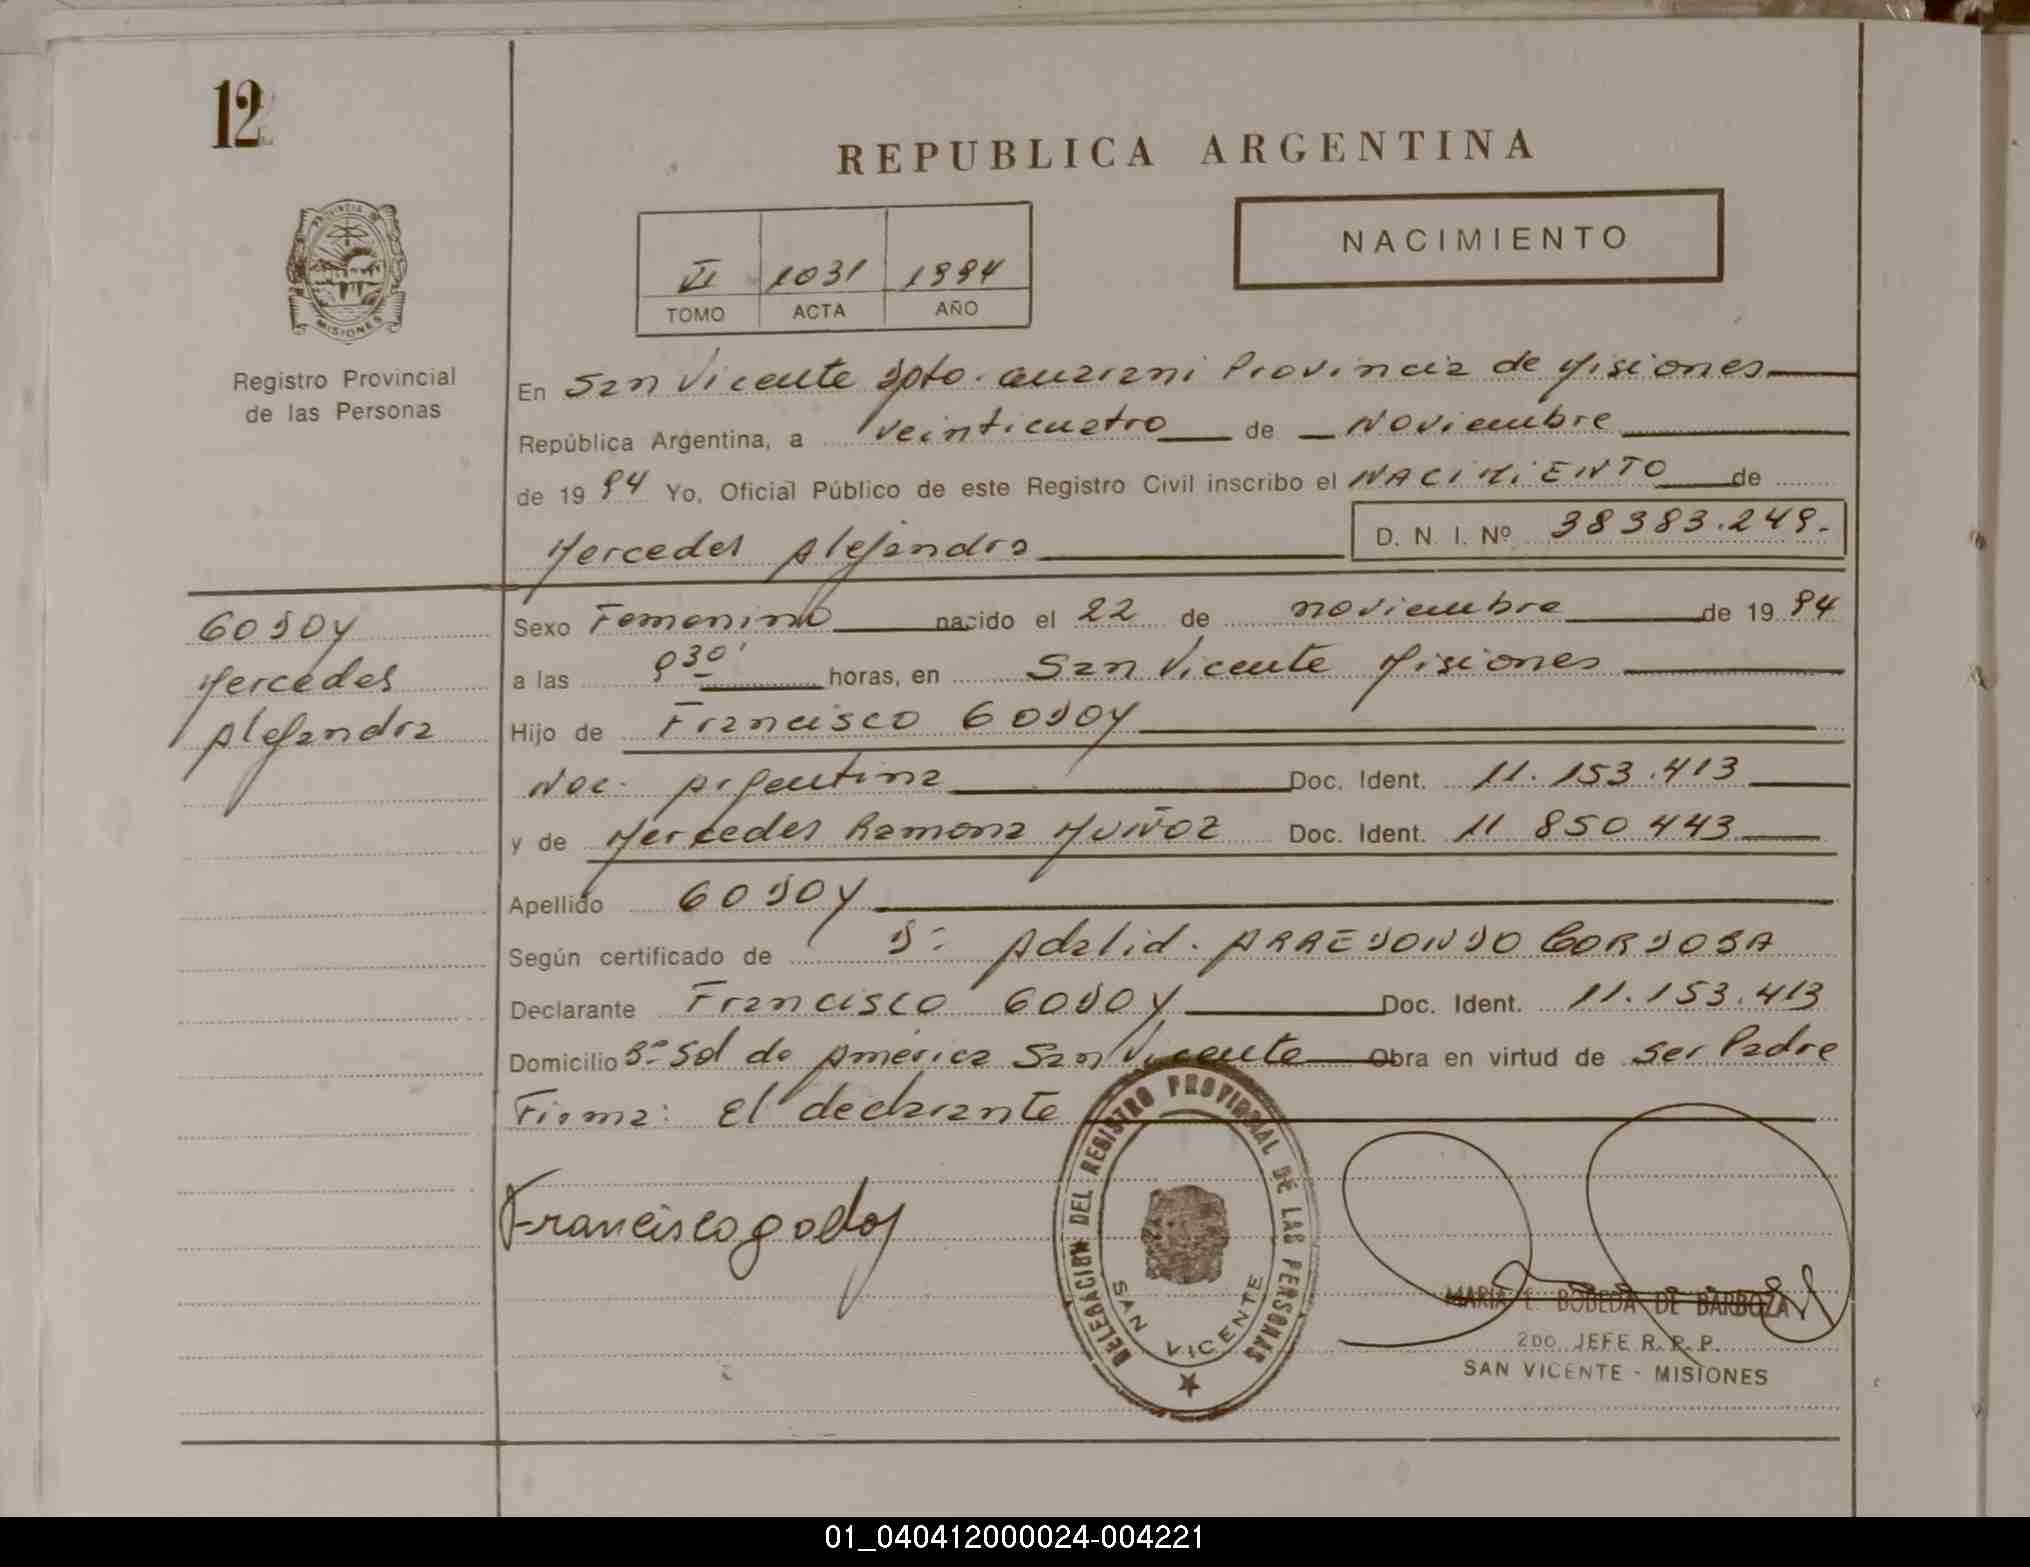 12
REPUBLICA ARGENTINA
NACIMIENTO
VI 1031 1994
TOMO ACTA AÑO
PROVINCIA DE
MISIONES
Registro Provincial
de las Personas
En San Vicente Dpto. Guarani Provincia de Misiones
República Argentina, a veinticuatro de Noviembre
de 19 94 Yo, Oficial Público de este Registro Civil inscribo el NACIMIENTO de
Mercedes Alejandra D. N. I. Nº 38383.249.-
GODOY
Mercedes
Alejandra
Sexo Femenino nacido el 22 de noviembre de 19 94
a las 9 30' horas, en San Vicente Misiones
Hijo de Francisco GODOY
Nac. Argentina Doc. Ident. 11.153.413
y de Mercedes Ramona MUÑOZ Doc. Ident. 11 850 443
Apellido GODOY
Según certificado de Dr Adalid. ARREDONDO CORDOBA
Declarante Francisco GODOY Doc. Ident. 11.153.413
Domicilio Bº Sol de America San Vicente Obra en virtud de ser Padre
Firma: El declarante
Francisco godoy
DELEGACION DEL REGISTRO PROVINCIAL DE LAS PERSONAS
SAN VICENTE
MARIA E. BOBEDA DE BARBOZA
2DO. JEFE R.P.P.
SAN VICENTE - MISIONES
01_040412000024-004221